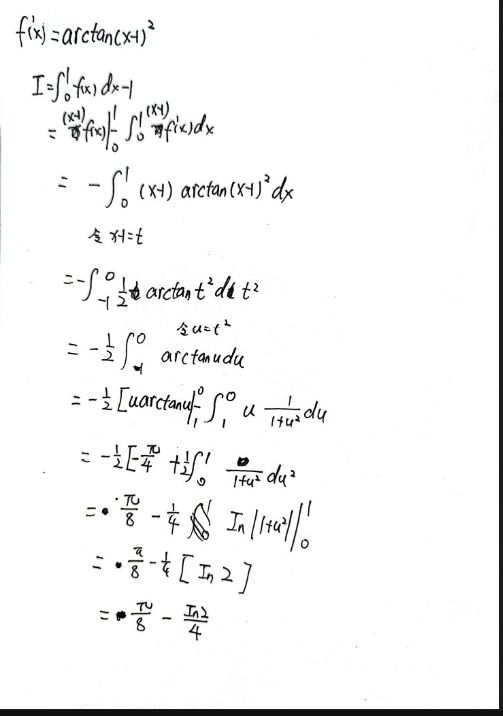 f'(x)=arctan(x-1)²
I=∫₀¹f(x)dx-1
=(x-1)f(x)|₀¹-∫₀¹(x-1)f'(x)dx
= -∫₀¹(x-1) arctan(x-1)²dx
令x-1=t
=-∫₋₁⁰ ½ arctan t² d t²
令u=t²
= -½∫₁⁰ arctanudu
= -½[uarctanu|₁⁰-∫₁⁰ u 1/(1+u²) du
= -½[-π/4 +½∫₀¹ 1/(1+u²) du²
= π/8 - ¼ In|1+u²||₀¹
= π/8 - ¼[In2]
= π/8 - In2/4